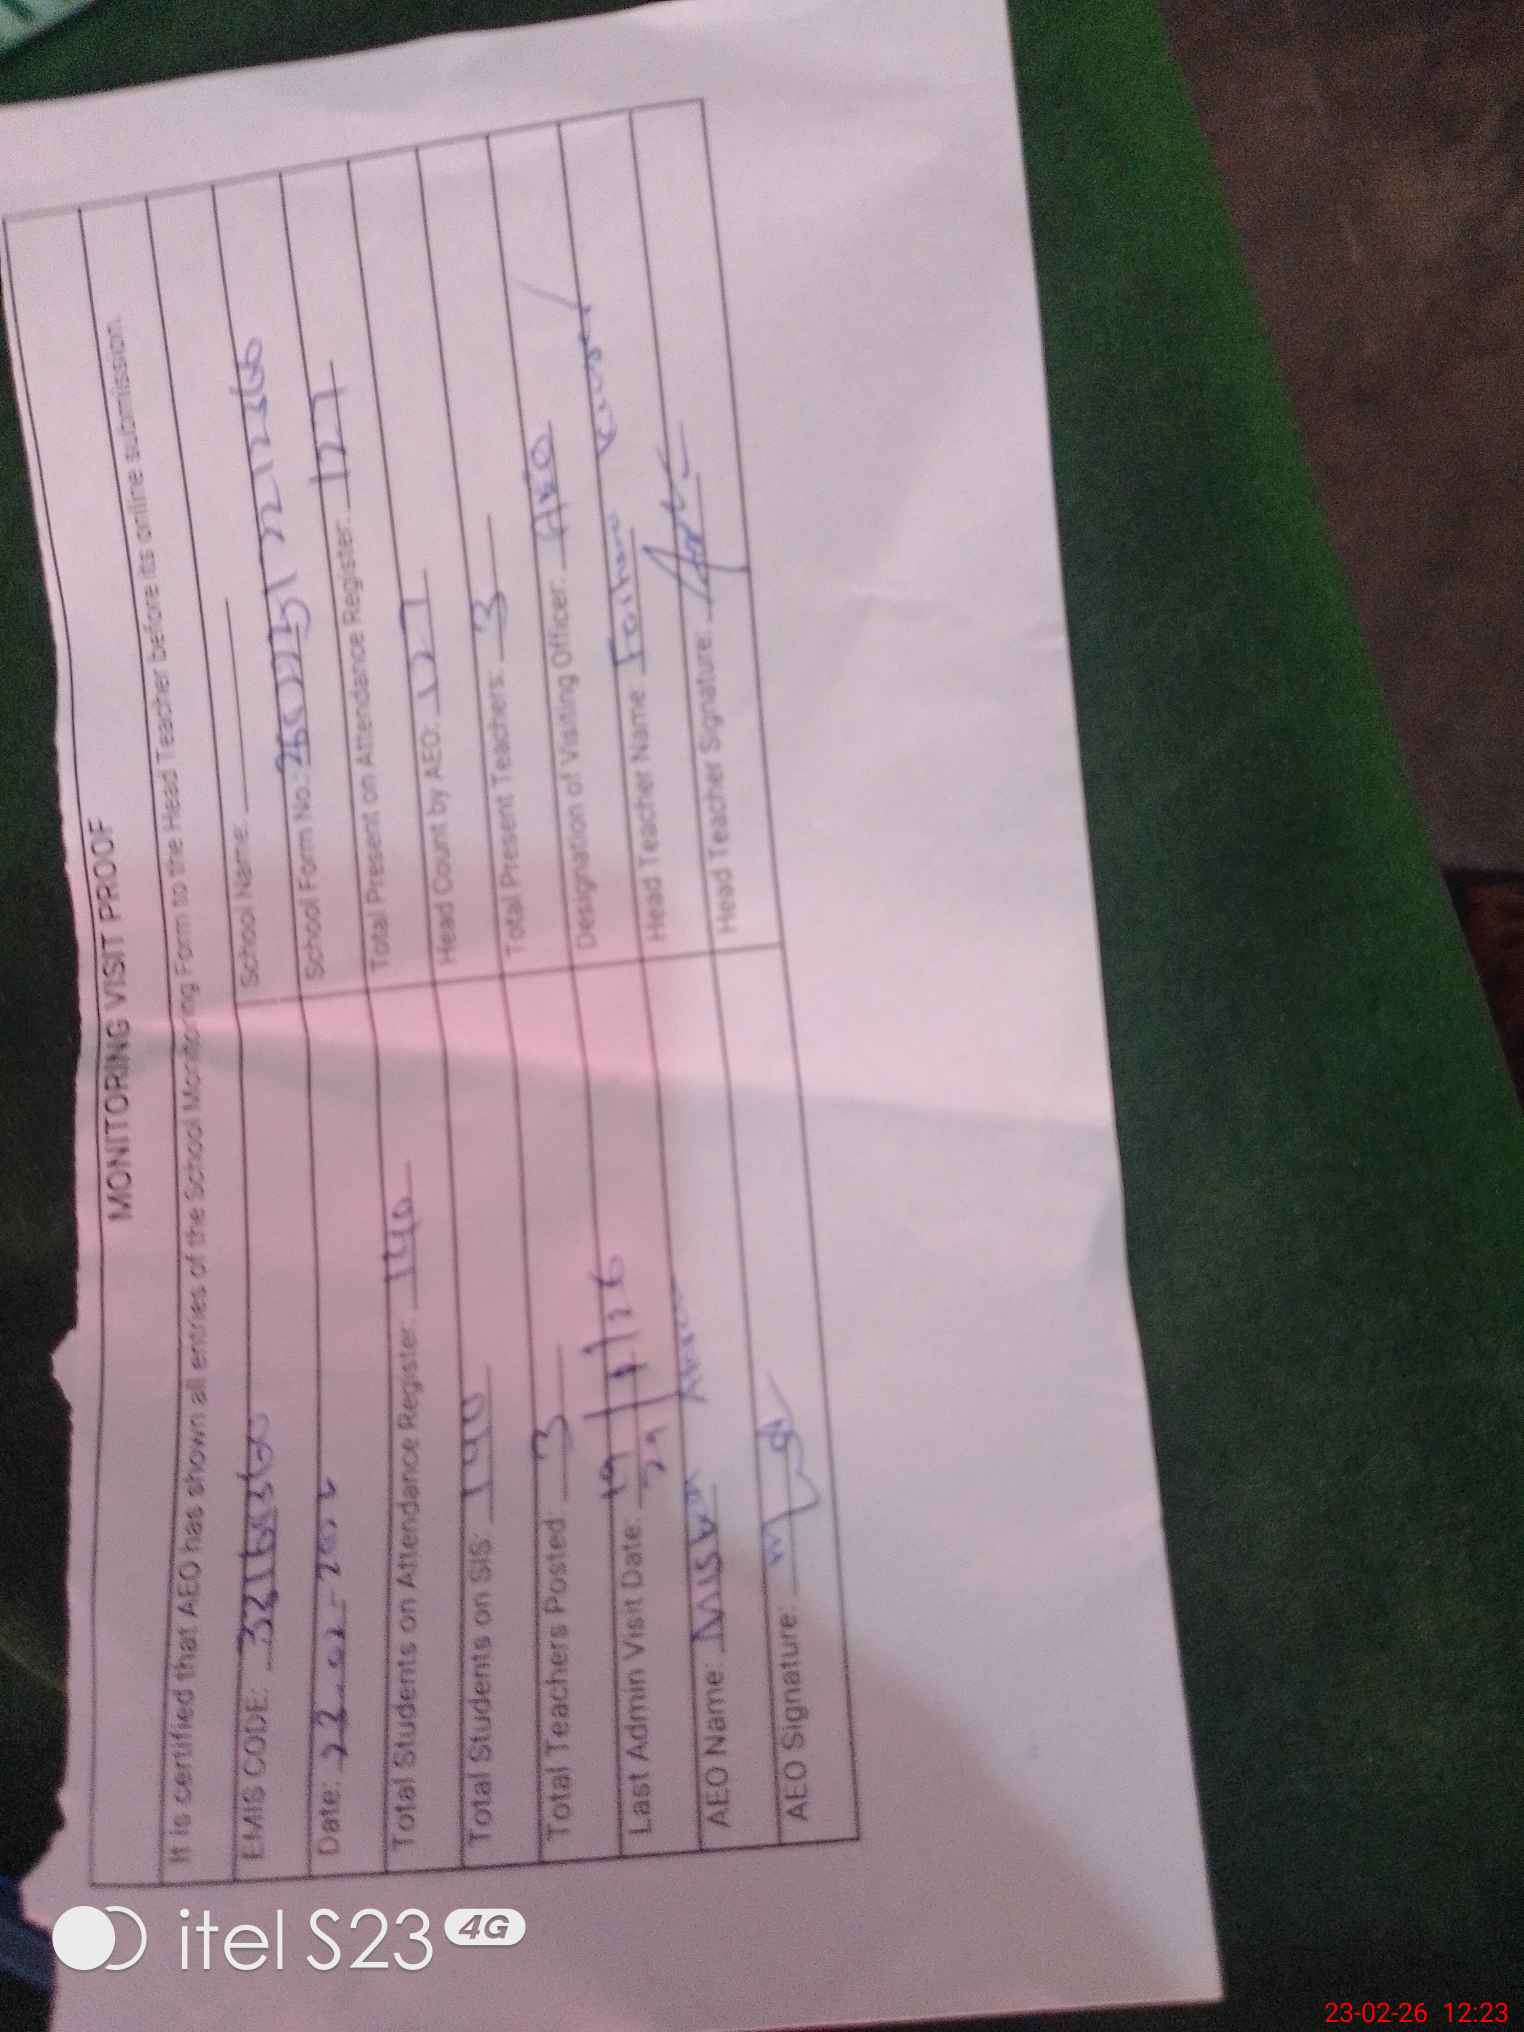 MONITORING VISIT PROOF
It is certified that AEO has shown all entries of the School Monitoring Form to the Head Teacher before its online submission.
EMIS CODE: School Name:
Date: School Form No.:
Total Students on Attendance Register: 140 Total Present on Attendance Register: 127
Total Students on SIS: 140 Head Count by AEO: 127
Total Teachers Posted: 3 Total Present Teachers: 3
Last Admin Visit Date: Designation of Visiting Officer: AEO
AEO Name: Head Teacher Name:
AEO Signature: Head Teacher Signature:
itel S23 4G
23-02-26 12:23